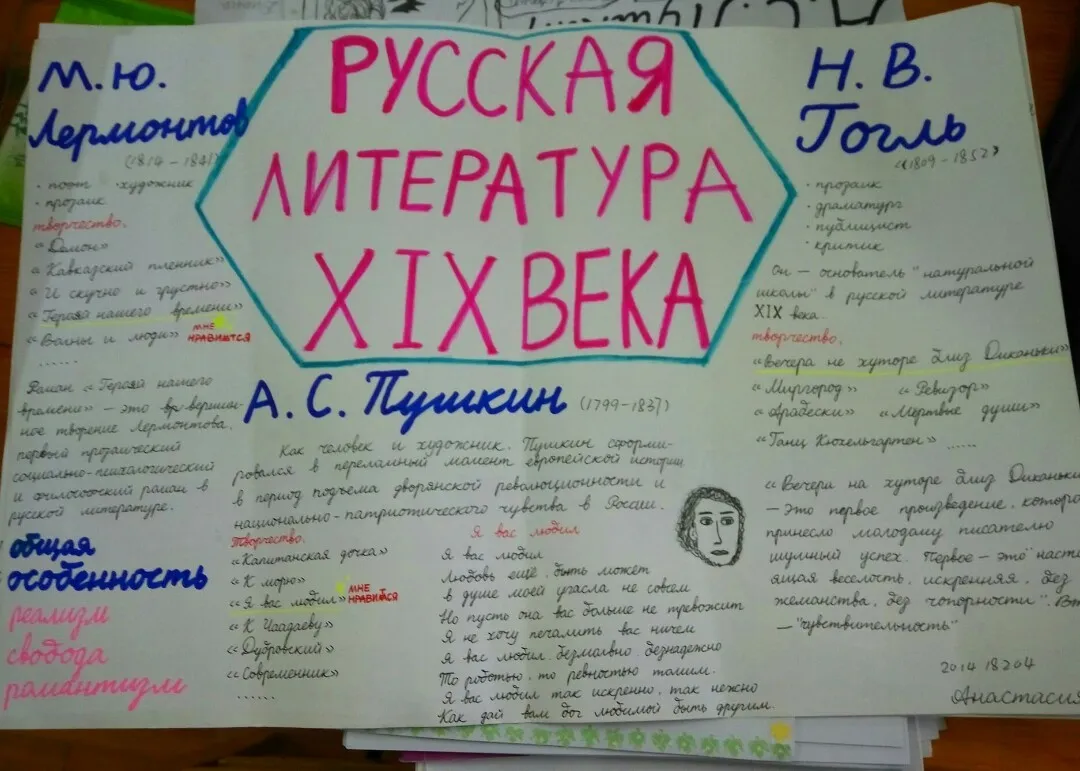 РУССКАЯ
ЛИТЕРАТУРА
XIX ВЕКА
М. Ю.
Лермонтов
(1814 – 1841)
· поэт · художник
· прозаик
творчество.
«Демон»
«Кавказский пленник»
«И скучно и грустно»
«Герояй нашего времени»
«Волны и люди» МНЕ НРАВИТСЯ
......
Роман «Герояй нашего
времени» – это вершин-
ное творение Лермонтова,
первый прозаический
социально-психологический
и философский роман в
русской литературе.
общая
особенность
реализм
свобода
романтизм
А. С. Пушкин (1799–1837)
Как человек и художник. Пушкин сформи-
ровался в переламный момент европейской истории
в период подъема дворянской революционности и
национально-патриотического чувства в России.
Творчество.
«Капитанская дочка»
«К морю»
«Я вас любил» МНЕ НРАВИТСЯ
«К Чаадаеву»
«Дубровский»
«Современник»
......
Я вас любил
Я вас любил
Любовь ещё, быть может
в душе моей угасла не совсем
Но пусть она вас больше не тревожит
Я не хочу печалить вас ничем
Я вас любил безмолвно, безнадежно
То робостью, то ревностью томим.
Я вас любил так искренно, так нежно
Как дай вам бог любимой быть другим.
Н. В.
Гогль
(1809 – 1852)
· прозаик
· драматург
· публицист
· критик
Он – основатель "натуральной
школы" в русской литературе
XIX века.
творчество.
«Вечера не хуторе близ Диканьки»
«Миргород» «Ревизор»
«Арабески» «Мертвые души»
«Ганц Кюхельгартен» ......
«Вечера на хуторе близ Диканьки
– это первое произведение, котора
принесло молодому писателю
шумный успех. Первое – это наст
ящая веселость, искренняя, без
жеманства, без чопорности".
– "чувствительность"
201418204
Анастасия